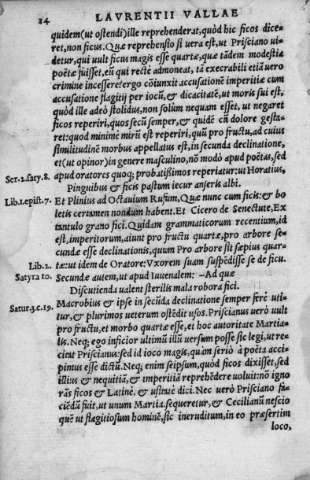 24 LAVRENTII VALLAE
quidem (ut ostendi) ille reprehenderat, quòd hic ficos dice=
ret, non ficus. Quæ reprehensio si uera est, ut Prisciano ui=
detur, qui uult ficus magis esse quartæ, quæ tãdem modestia
poëtæ fuisset, eũ qui rectè admoneat, tã execrabili etiã uero
crimine incessere? ergo cõiunxit accusationẽ imperitiæ cum
accusatione flagitij per iocũ, & dicacitatẽ, ut moris sui est,
quòd ille adeò stolidus, non solùm nequam esset, ut negaret
ficos reperiri, quos secũ semper, & quidẽ cũ dolore gesta=
ret: quod minimè mirũ est reperiri, quũ pro fructu, ad cuius
similitudinẽ morbus appellatus est, in secunda declinatione,
et (ut opinor) in genere masculino, nõ modò apud poëtas, sed
Ser.2.saty.8. apud oratores quoq; probatissimos reperiatur: ut Horatius,
Pinguibus & ficis pastum iecur anseris albi.
Lib.1.epist.7. Et Plinius ad Octauium Rufum, Quæ nunc cum ficis: & bo
letis certamen nondum habent. Et Cicero de Senectute, Ex
tantulo grano fici. Quidam grammaticorum recentium, id
est, imperitorum, aiunt pro fructu quartæ, pro arbore se=
cundæ esse declinationis, quum Pro arbore sit sæpius quar=
Lib.2. tæ: ut idem de Oratore: Vxorem suam suspẽdisse se de ficu.
Satyra 10. Secundæ autem, ut apud Iuuenalem: –Ad quæ
Discutienda ualent sterilis mala robora fici.
Satur.3.c.19. Macrobius & ipse in secũda declinatione semper ferè uti=
tur, & plurimos ueterum ostẽdit usos. Priscianus uerò uult
pro fructu, et morbo quartæ esse, et hoc autoritate Martia=
lis. Neq; ego inficior ultimũ illũ uersum posse sic legi, ut re=
cinit Priscianus: sed id ioco magis, quàm seriò à poëta acci=
pimus esse dictũ. Neq; enim seipsum, quòd ficos dixisset, sed
illius & nequitiã, & imperitiã reprehẽdere uoluit: nõ igno
rãs ficos & Latinè, & usitatè dici. Nec uerò Prisciano fa=
ciẽdũ fuit, ut unum Martia. sequeretur, & Cecilianũ nescio
quẽ ut flagitiosum hominẽ, sic ineruditum, in eo præsertim
loco,